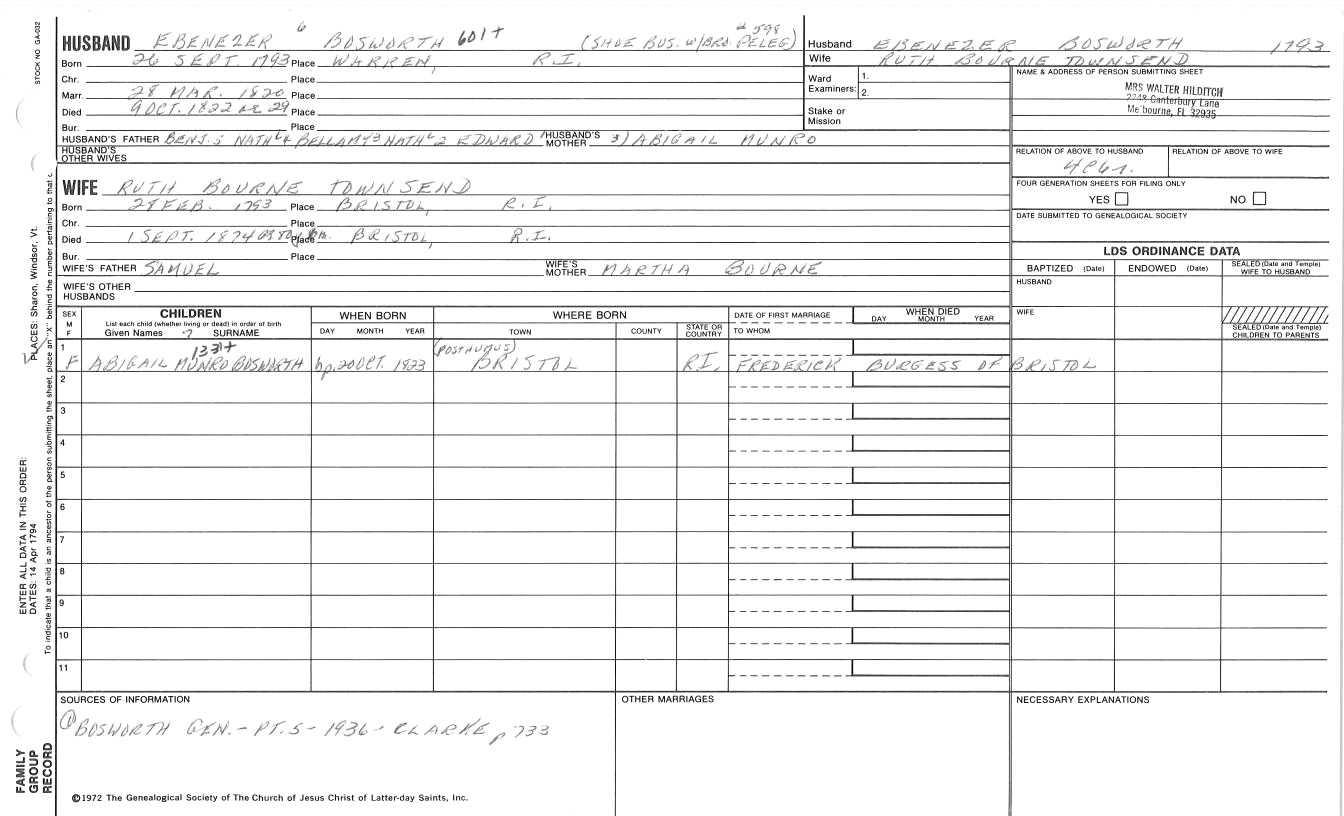 STOCK NO. GA-032
HUSBAND EBENEZER 6 BOSWORTH 601+ (SHOE BUS. W/BRO. PELEG) #598
Born 26 SEPT. 1793 Place WARREN, R.I.
Chr. Place
Marr. 28 MAR. 1820 Place
Died 9 OCT. 1822 ae 29 Place
Bur. Place
HUSBAND'S FATHER BENJ.5 NATH'L4 BELLAMY3 NATH'L2 EDWARD1 HUSBAND'S MOTHER 3) ABIGAIL MUNRO
HUSBAND'S OTHER WIVES
Husband EBENEZER BOSWORTH 1793
Wife RUTH BOURNE TOWNSEND
Ward Examiners: 1.
2.
Stake or Mission
NAME & ADDRESS OF PERSON SUBMITTING SHEET
MRS WALTER HILDITCH
2248 Canterbury Lane
Melbourne, FL 32935
RELATION OF ABOVE TO HUSBAND RELATION OF ABOVE TO WIFE
FOUR GENERATION SHEETS FOR FILING ONLY
YES NO
DATE SUBMITTED TO GENEALOGICAL SOCIETY
WIFE RUTH BOURNE TOWNSEND
Born 28 FEB. 1793 Place BRISTOL, R.I.
Chr. Place
Died 1 SEPT. 1874 Place BRISTOL, R.I.
Bur. Place
WIFE'S FATHER SAMUEL WIFE'S MOTHER MARTHA BOURNE
WIFE'S OTHER HUSBANDS
LDS ORDINANCE DATA
BAPTIZED (Date) ENDOWED (Date) SEALED (Date and Temple) WIFE TO HUSBAND
HUSBAND
WIFE
SEALED (Date and Temple) CHILDREN TO PARENTS
SEX M F CHILDREN WHEN BORN WHERE BORN DATE OF FIRST MARRIAGE WHEN DIED
List each child (whether living or dead) in order of birth
Given Names 7 SURNAME DAY MONTH YEAR TOWN COUNTY STATE OR COUNTRY TO WHOM DAY MONTH YEAR
1 1331+ (POSTHUMUS)
F ABIGAIL MUNRO BOSWORTH bp. 20 OCT. 1823 BRISTOL R.I. FREDERICK BURGESS OF BRISTOL
2
3
4
5
6
7
8
9
10
11
SOURCES OF INFORMATION OTHER MARRIAGES NECESSARY EXPLANATIONS
① BOSWORTH GEN. - PT. 5 - 1936 - CLARKE p 733
©1972 The Genealogical Society of The Church of Jesus Christ of Latter-day Saints, Inc.
FAMILY GROUP RECORD
ENTER ALL DATA IN THIS ORDER:
DATES: 14 Apr 1794
PLACES: Sharon, Windsor, Vt.
To indicate that a child is an ancestor of the person submitting the sheet, place an "X" behind the number pertaining to that